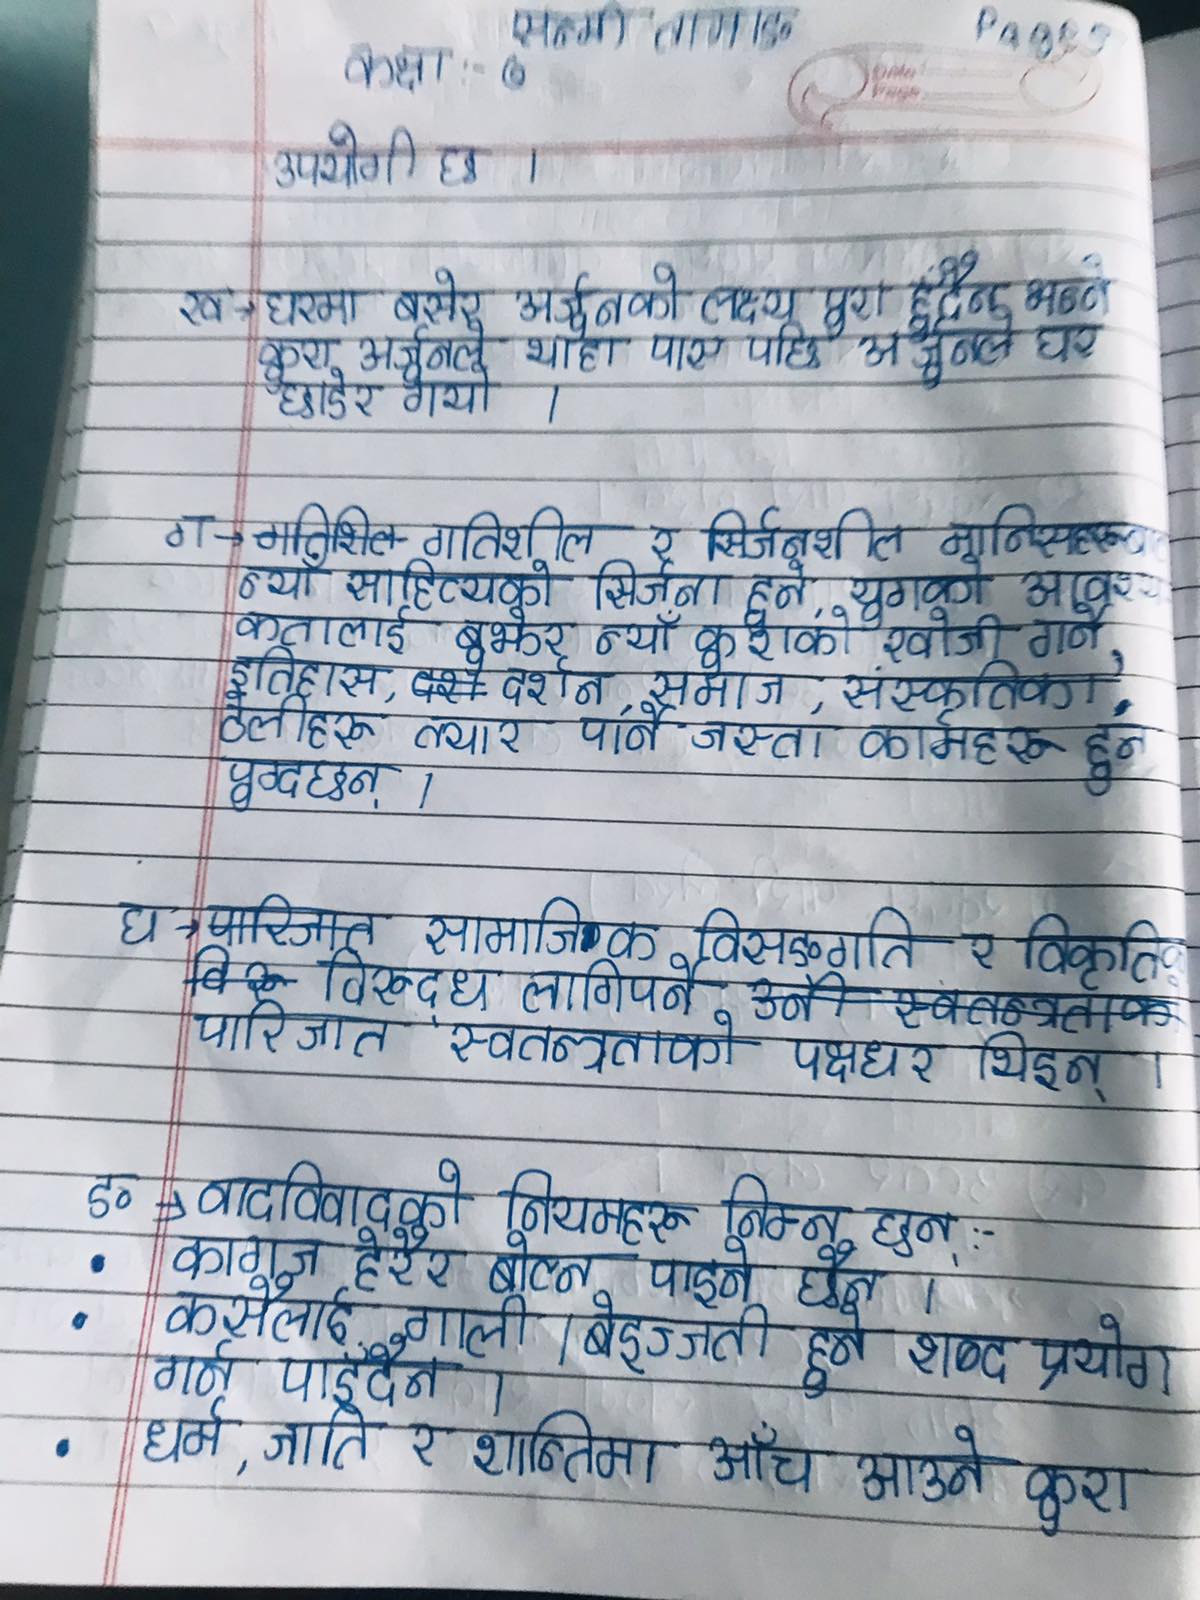 सन्मी तामाङ
कक्षा :- ७
उपयोगी छ ।
ख → घरमा बसेर अर्जुनको लक्ष्य पुरा हुँदैन भन्ने
कुरा अर्जुनले थाहा पाए पछि अर्जुनले घर
छाडेर गयो ।
ग → गतिशिल गतिशील र सिर्जनशील मानिसहरूबाट
न्याँ साहित्यको सिर्जना हुने, युगको आवश्य
कतालाई बुझेर न्याँ कुराको खोजी गर्ने,
इतिहास, दर्श दर्शन, समाज, संस्कृतिका
ठेलीहरू तयार पार्ने जस्ता कामहरू हुन
पुग्दछन् ।
घ → पारिजात सामाजिक विसङगति र विकृति
वि रू विरूद्ध लागिपर्ने उनी स्वतन्त्रताक
पारिजात स्वतन्त्रताको पक्षधर थिइन् ।
ङ → वादविवादको नियमहरू निम्न छन् :-
• कागज हेरेर बोल्न पाइने छैन ।
• कसैलाई गाली / बेइज्जती हुने शब्द प्रयोग
गर्न पाइँदैन ।
• धर्म, जाति र शान्तिमा आँच आउने कुरा